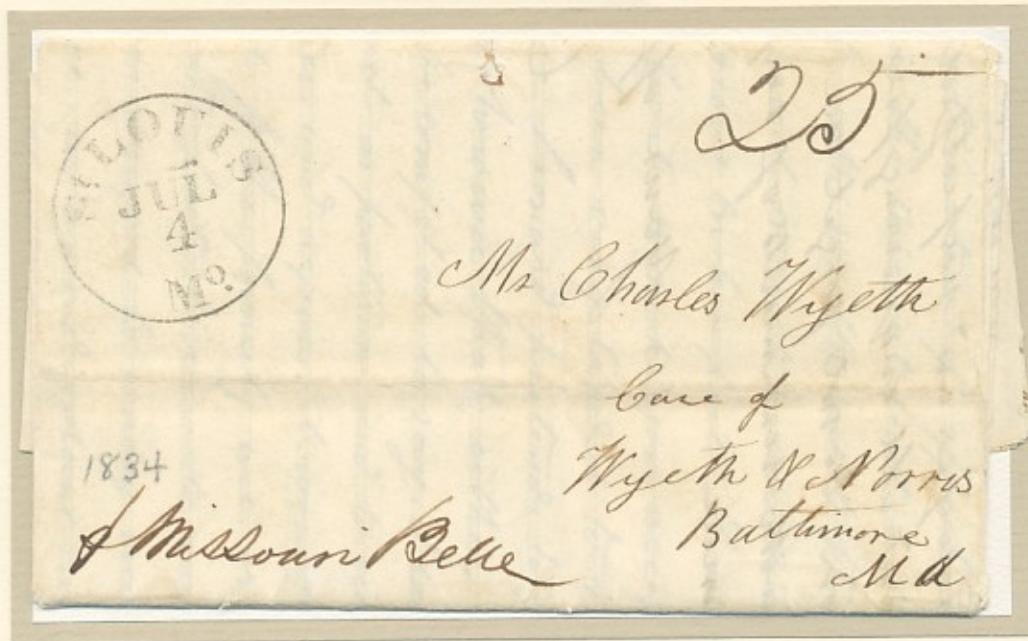 St LOUIS
JUL
4
Mo.
25
Mr Charles Wyeth
Care of
Wyeth & Norris
Baltimore
Md
1834
Missouri Belle